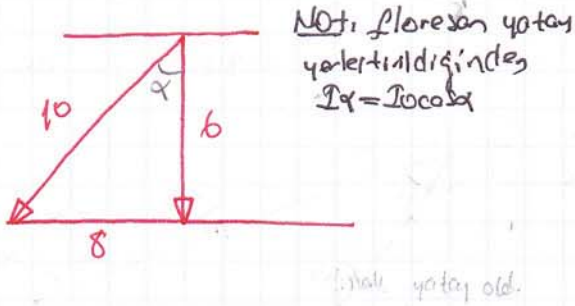 NOT: floresan yatay
yerleştirildiğinden
Iα = I0cosα
α
10
6
8
yatay old.